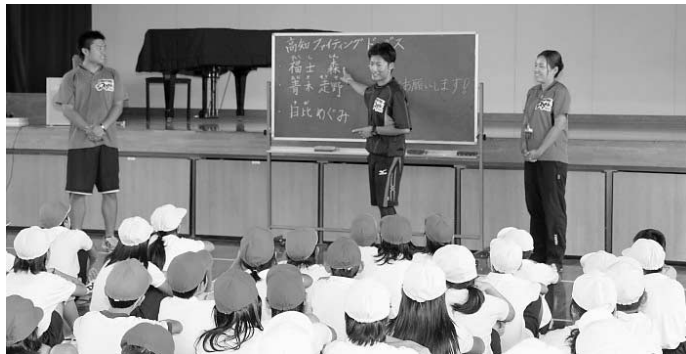 高知ファイティングドッグス
福士 森
青木 走野
日比 めぐみ
お願いします!